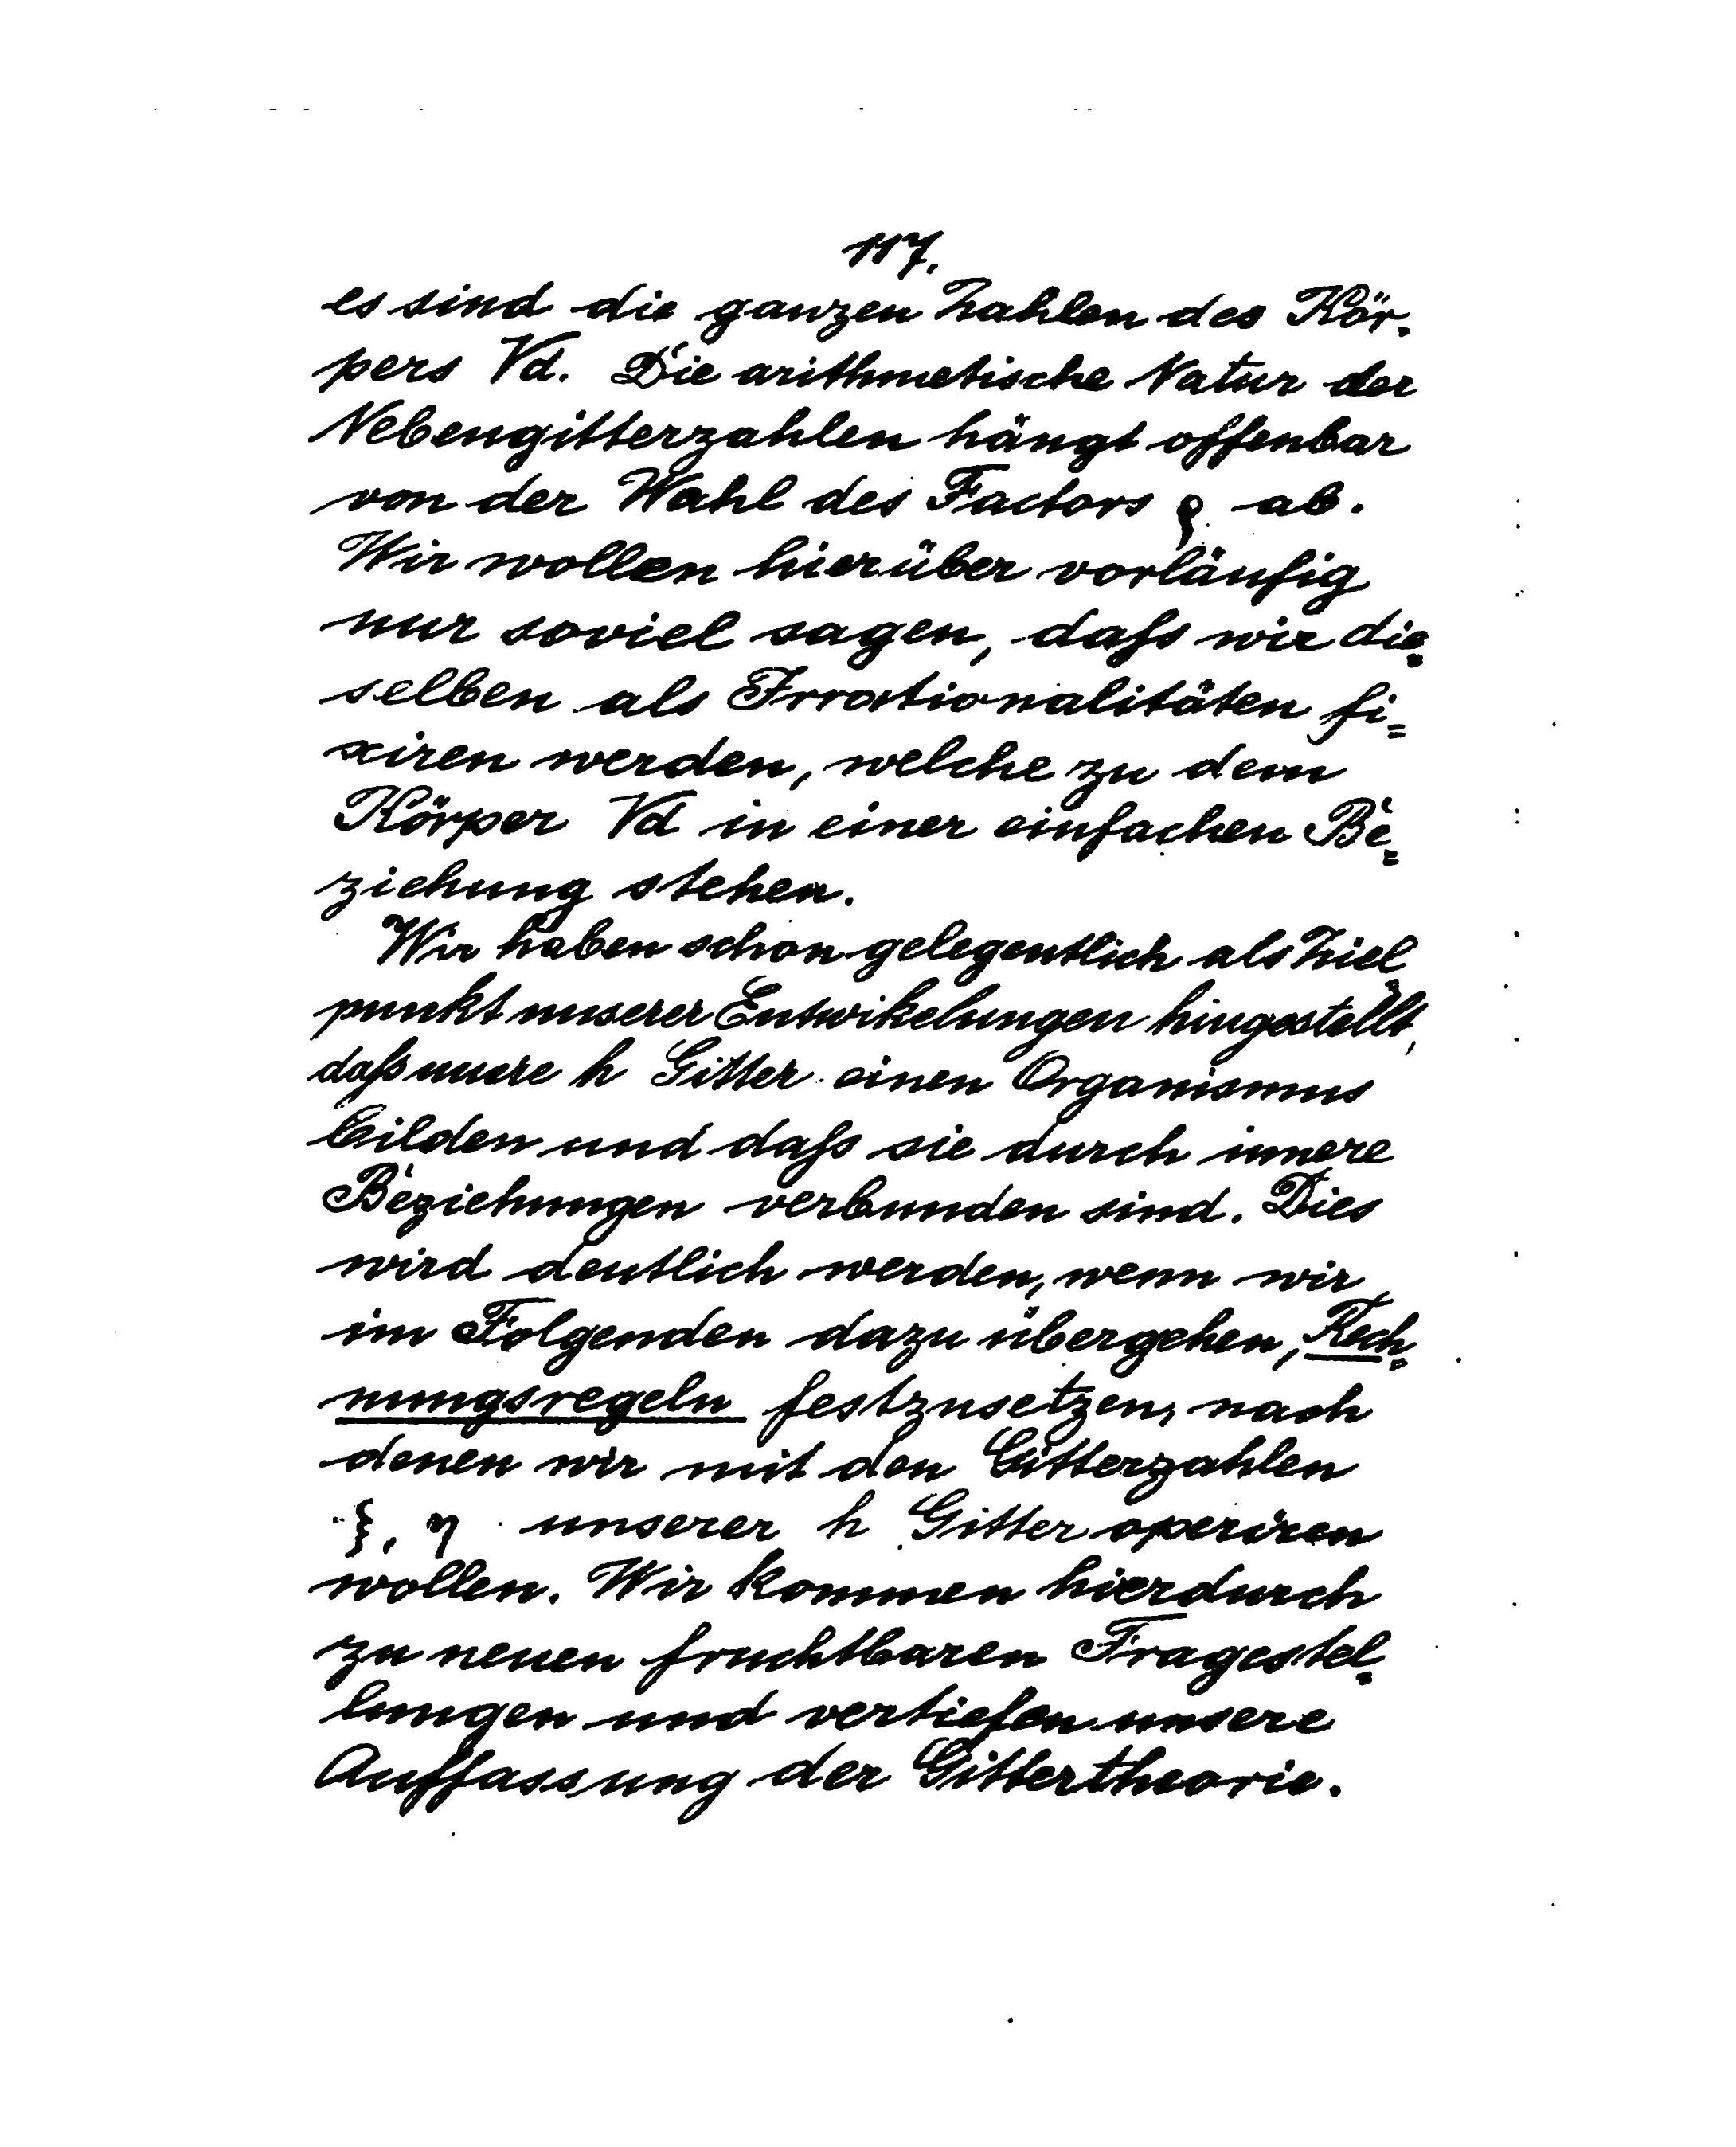 117.
es sind die ganzen Zahlen des Kör-
pers √d. Die arithmetische Natur der
Nebengitterzahlen hängt offenbar
von der Wahl des Factors ϱ ab.
Wir wollen hierüber vorläufig
nur soviel sagen, daſs wir die=
selben als Irrationalitäten fi=
xiren werden, welche zu dem
Körper √d in einer einfachen Be=
ziehung stehen.
Wir haben schon gelegentlich als Ziel=
punkt unserer Entwikelungen hingestellt,
daſs unsre h Gitter einen Organismus
bilden und daſs sie durch innere
Beziehungen verbunden sind. Dies
wird deutlich werden, wenn wir
im Folgenden dazu übergehen, Rech=
nungsregeln festzusetzen, nach
denen wir mit den Gitterzahlen
ξ, η unserer h Gitter operiren
wollen. Wir kommen hierdurch
zu neuen fruchtbaren Fragestel=
lungen und vertiefen unsere
Auffassung der Gittertheorie.